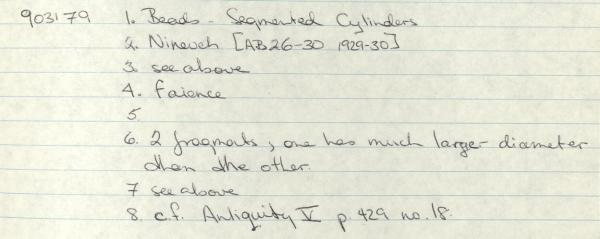 903179 1. Beads - Segmented Cylinders
2. Nineveh [AB26-30 1929-30]
3. see above
4. faience
5
6. 2 fragments, one has much larger diameter
then the other.
7 see above
8. c.f. Antiquity V p. 429 no. 18.